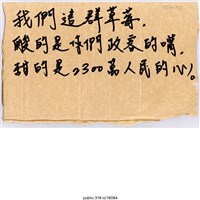 我們這群草莓，
酸的是你們政客的嘴，
甜的是2300萬人民的心。
public.318.io/16584